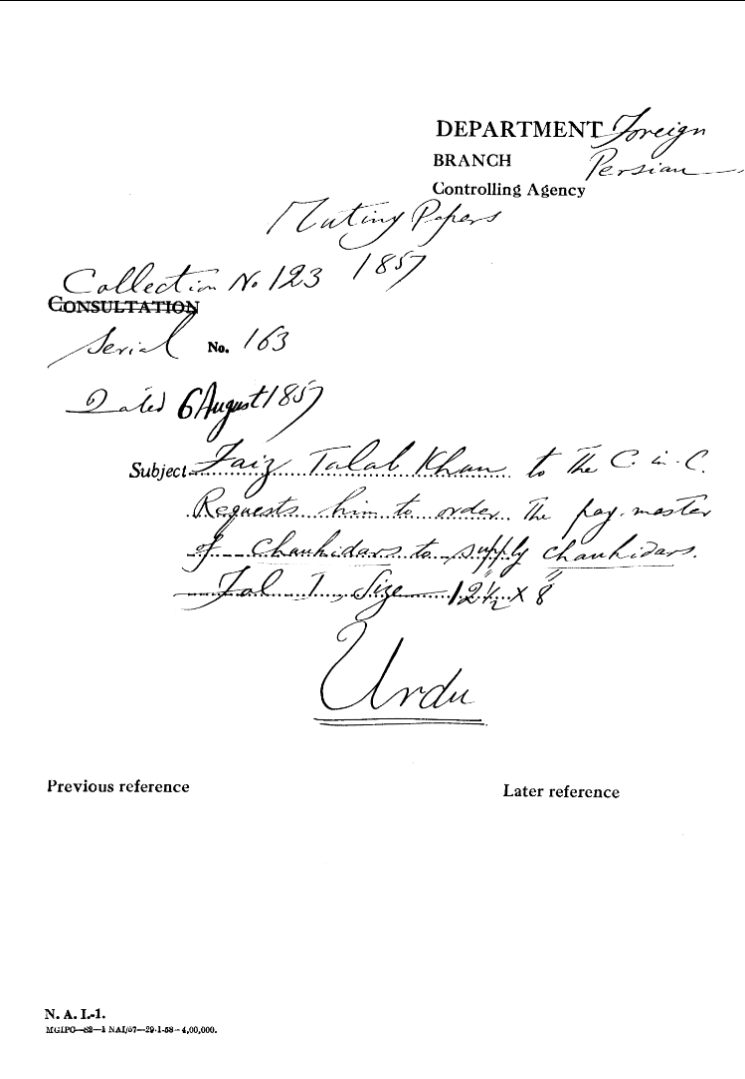 DEPARTMENT Foreign
BRANCH Persian
Controlling Agency
Mutiny Papers
1857
Collection No 123
CONSULTATION
Serial No. 163
Dated 6 August 1857
Subject Faiz Talab Khan to the C-in-C.
Requests him to order the pay-master
of chaukidars to supply chaukidars.
Fol 1, Size 12½" x 8"
Urdu
Previous reference Later reference
N. A. I.-1.
MGIPC—82—1 NAI/57—29-1-58—4,00,000.